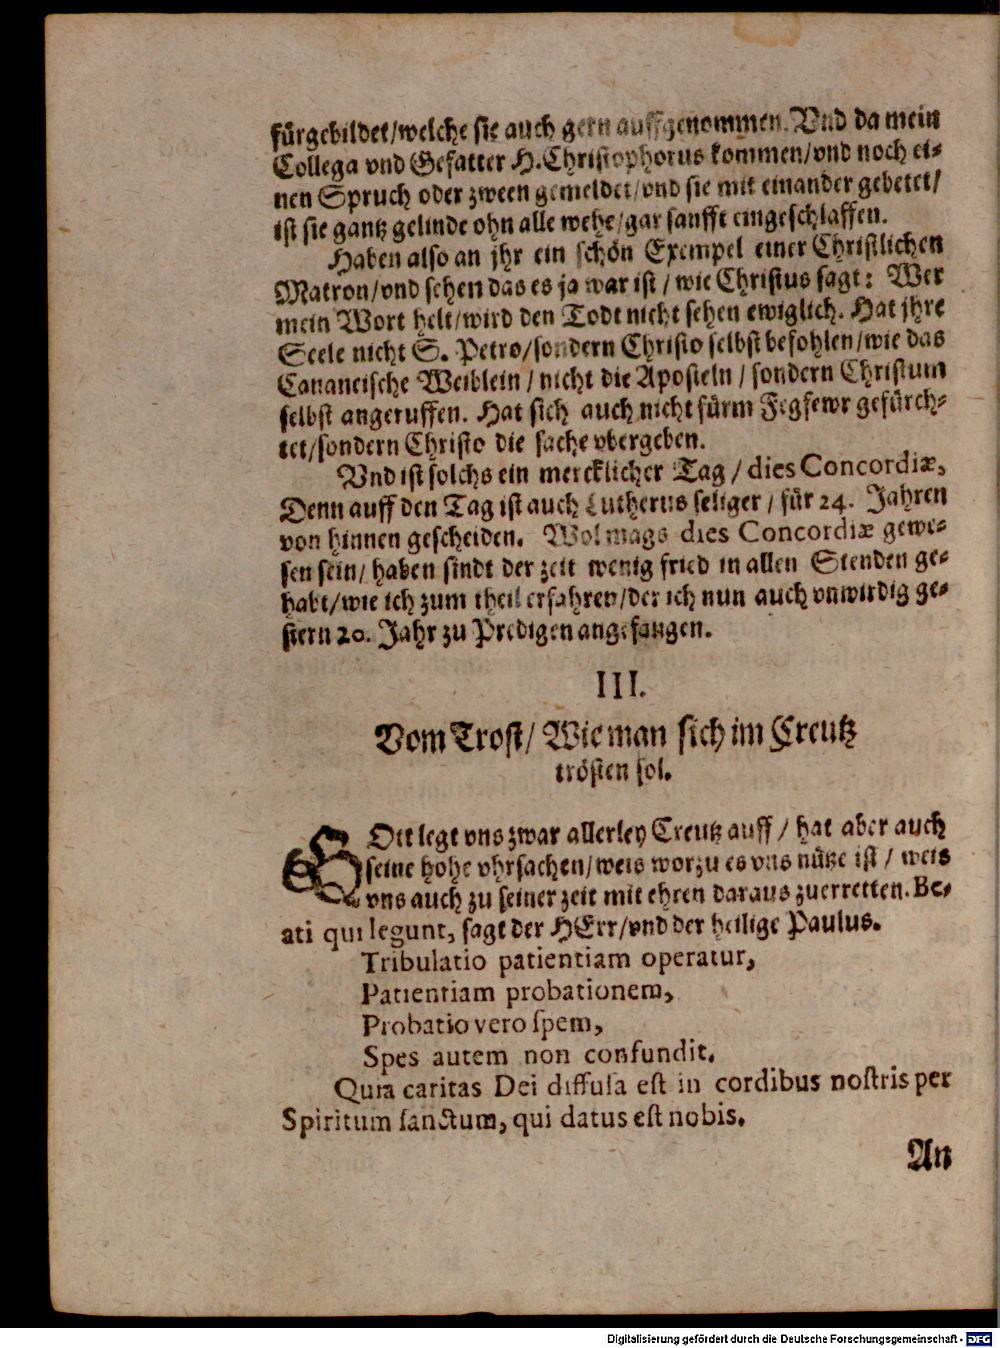 fürgebildet/welche sie auch gern auffgenommen. Vnd da mein
Collega vnd Gefatter H. Christophorus kommen/vnd noch ei-
nen Spruch oder zween gemeldet/vnd sie mit einander gebetet/
ist sie gantz gelinde ohn alle wehe/gar sanfft eingeschlaffen.
Haben also an jhr ein schön Exempel einer Christlichen
Matron/vnd sehen das es ja war ist/wie Christus sagt: Wer
mein Wort helt/wird den Todt nicht sehen ewiglich. Hat jhre
Seele nicht S. Petro/sondern Christo selbst befohlen/wie das
Cananeische Weiblein/nicht die Aposteln/sondern Christum
selbst angeruffen. Hat sich auch nicht fürm Fegfewr gefürch-
tet/sondern Christo die sache vbergeben.
Vnd ist solchs ein mercklicher Tag/dies Concordiæ,
Denn auff den Tag ist auch Lutherus seliger/für 24. Jahren
von hinnen gescheiden. Wol mags dies Concordiæ gewe-
sen sein/haben sindt der zeit wenig fried in allen Stenden ge-
habt/wie ich zum theil erfahren/der ich nun auch vnwirdig ge-
stern 20. Jahr zu Predigen angefangen.
III.
Vom Trost/Wie man sich im Creutz
trösten sol.
GOtt legt vns zwar allerley Creutz auff/hat aber auch
seine hohe vhrsachen/weis worzu es vns nütze ist/weis
vns auch zu seiner zeit mit ehren daraus zuerretten. Be-
ati qui legunt, sagt der HErr/vnd der heilige Paulus.
Tribulatio patientiam operatur,
Patientiam probationem,
Probatio vero spem,
Spes autem non confundit.
Quia caritas Dei diffusa est in cordibus nostris per
Spiritum sanctum, qui datus est nobis.
An
Digitalisierung gefördert durch die Deutsche Forschungsgemeinschaft - DFG